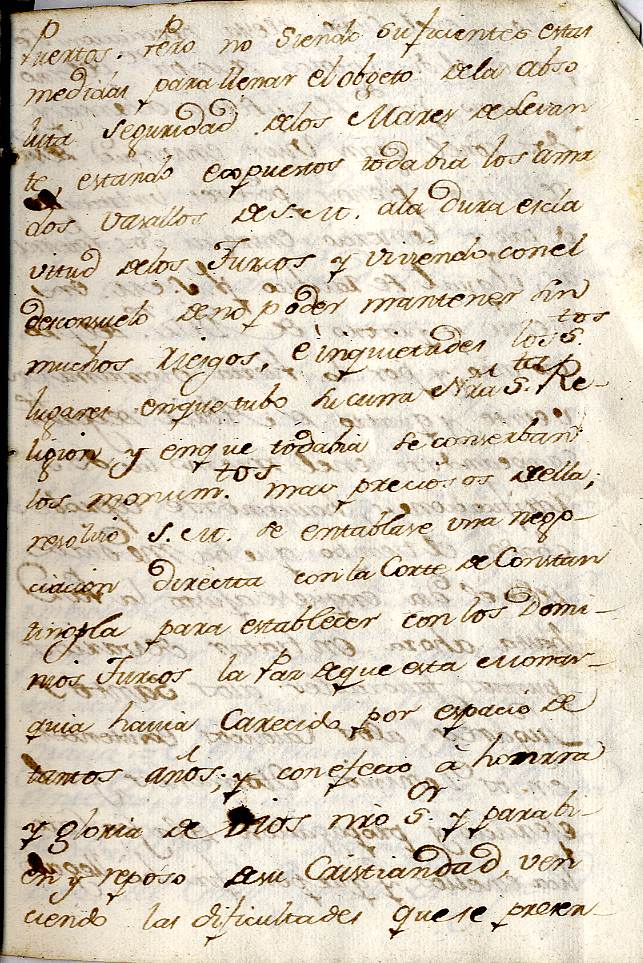 Puertos. Pero no siendo suficientes estas
medidas para llenar el obgeto dela abso
luta seguridad delos Mares de Levan
te, estando expuestos todabia los ama
dos vasallos de S. M. ala dura escla
vitud delos Turcos y viviendo con el
desconsuelo deno poder mantener sin
muchos riesgos, é inquietudes los S.tos
lugares enque tubo su cuna Nrâ S.ta Re-
ligion y enque todabia se conserban
los monum.tos mas preciosos della;
resolvio S. M. se entablase una nego-
ciacion directta con la Corte de Constan
tinopla para establecer con los Domi-
nios Turcos la Paz deque esta Monar-
quia havia Carecido por espacio de
tantos años; y con efecto â honrra
y gloria de Dios nrō S.or y para bi-
en y reposo desu Cristiandad, ven
ciendo las dificultades que se presen